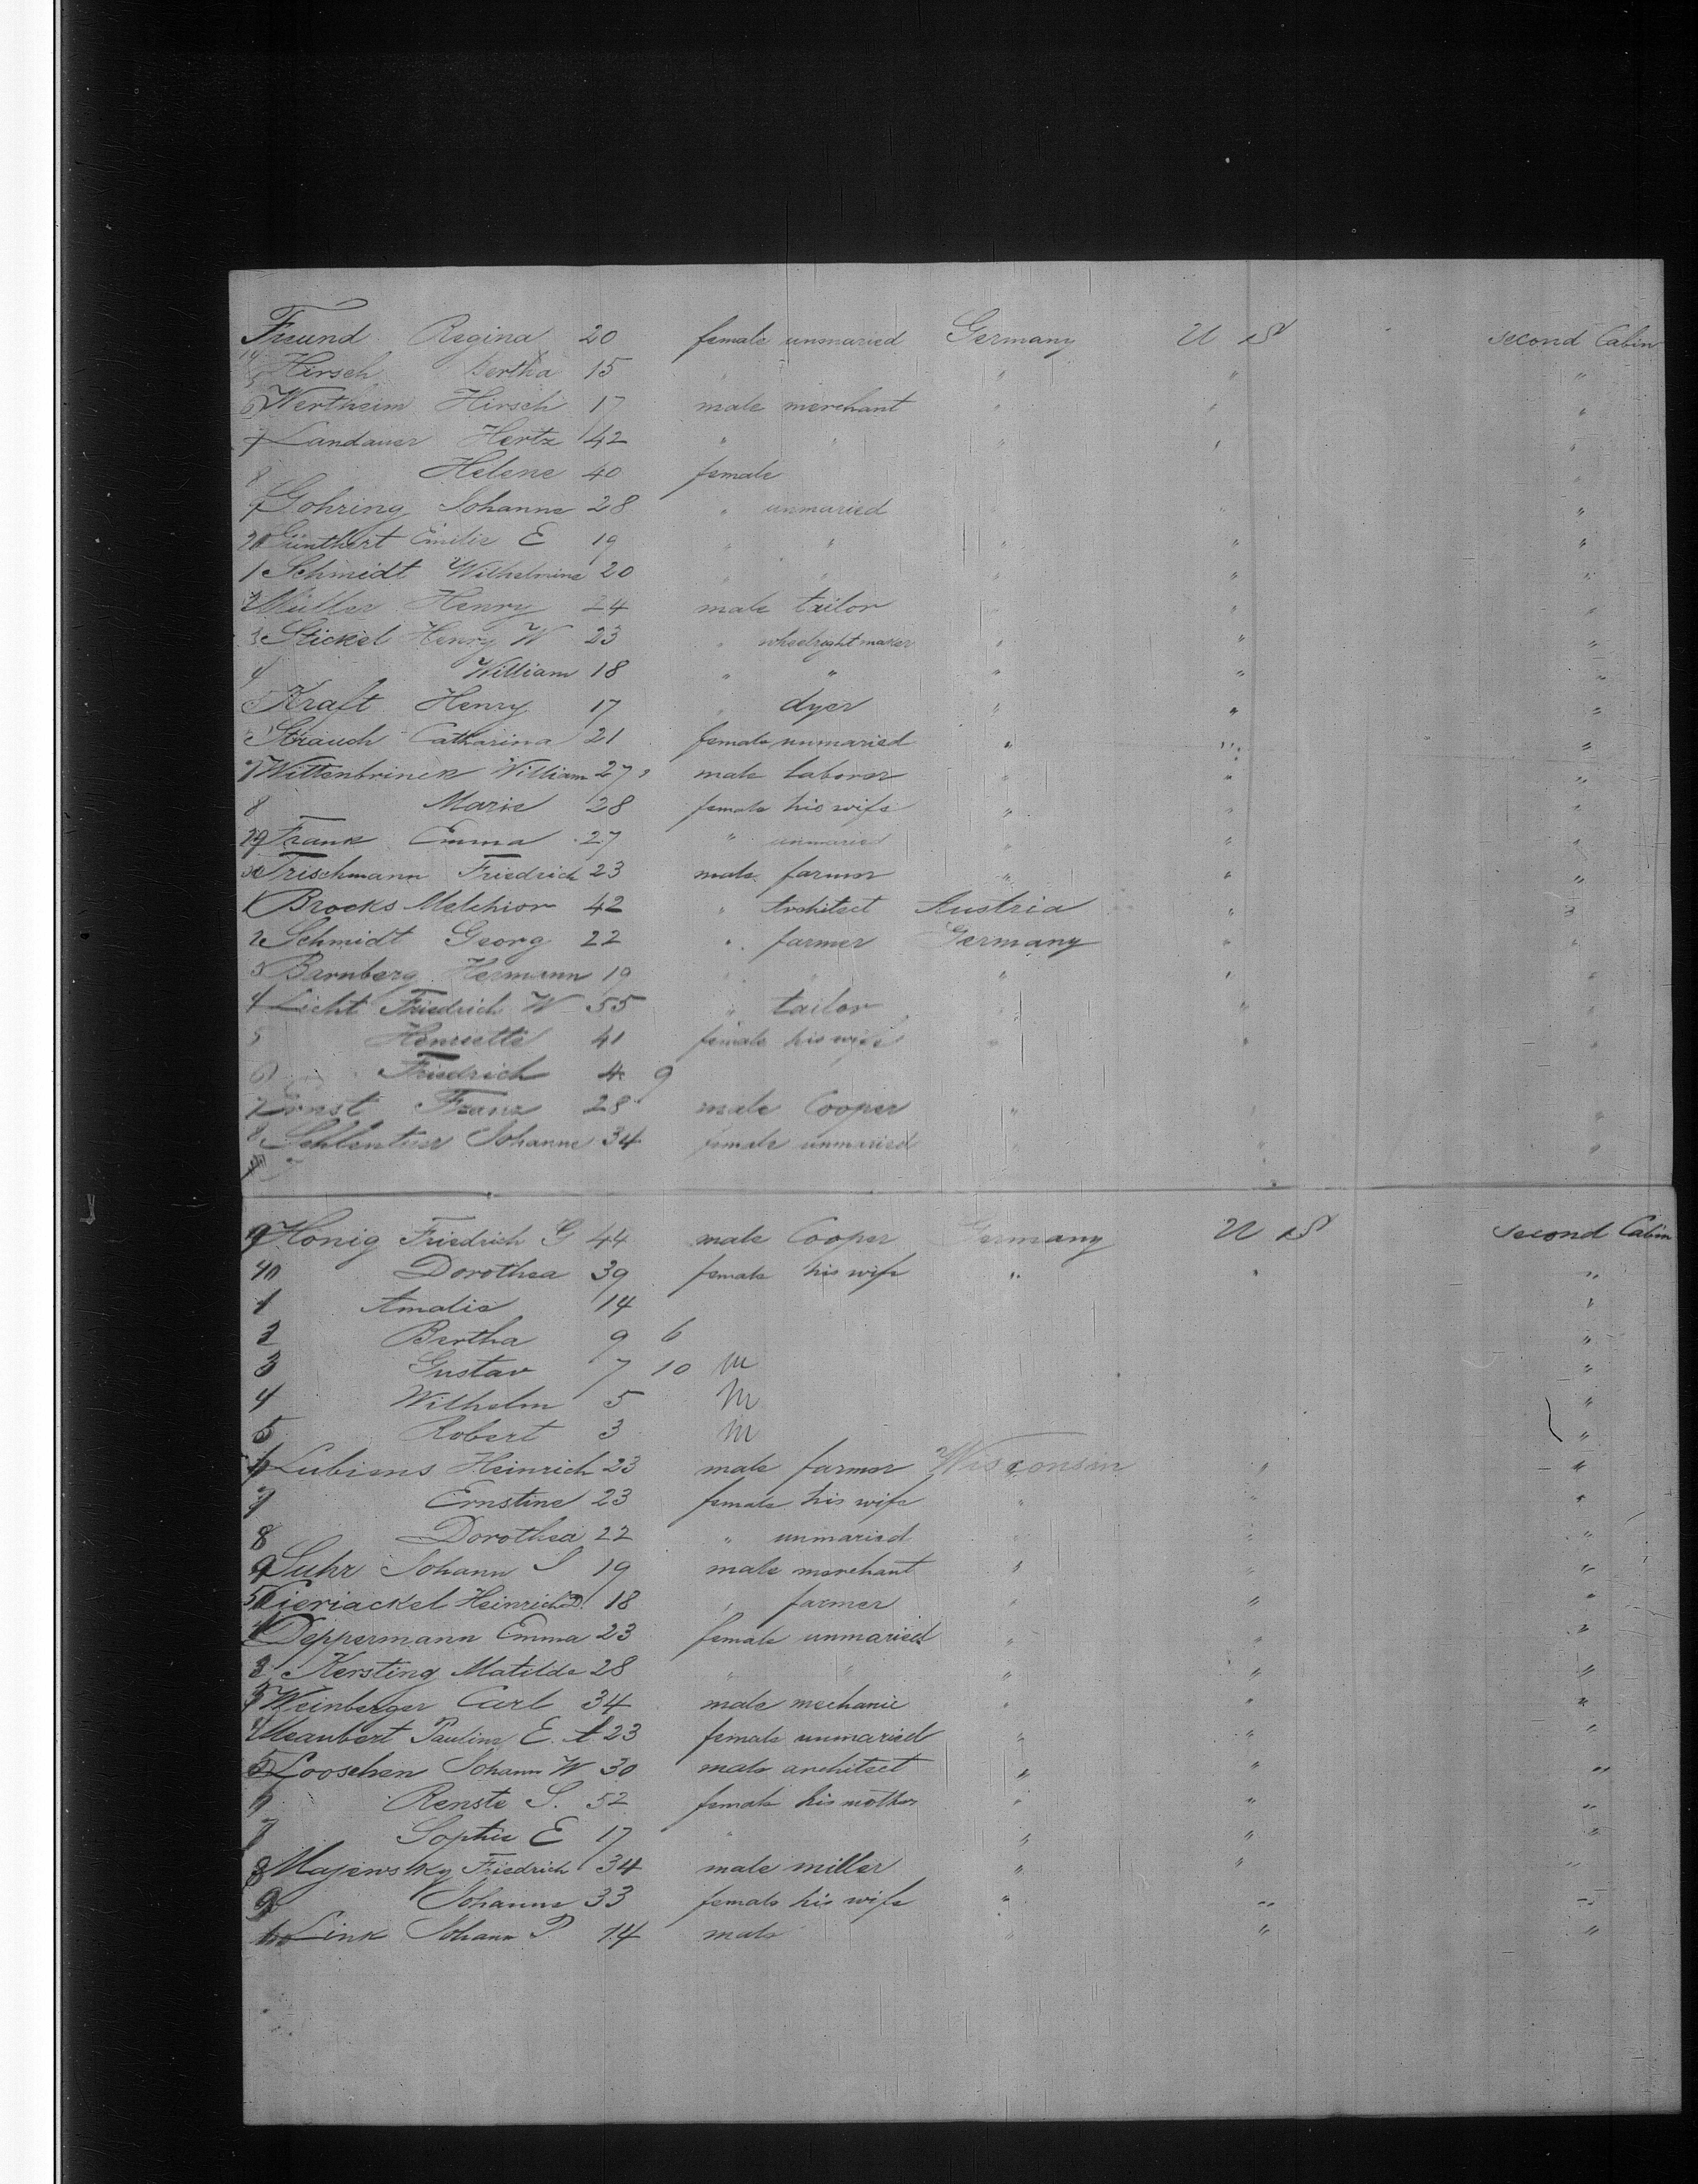 Freund Regina 20 female unmaried Germany U St second Cabin
14
5 Hirsch Bertha 15 " " " "
6 Wertheim Hirsch 17 male merchant " " "
7 Landauer Hertz 42 " " " " "
8 Helene 40 female "
9 Gohring Johanne 28 " unmaried " " "
20 Günthert Emilie E 19 " " " " "
1 Schmidt Wilhelmine 20 " " " " "
2 Müller Henry 24 male tailor " " "
3 Stickel Henry W 23 " wheelright maker " " "
4 William 18 " " " " "
5 Kraft Henry 17 " dyer " " "
Strauch Catharina 21 female unmaried " " "
7 Wittenbrinck William 27 male laborer " " "
8 Marie 28 female his wife " " "
29 Frank Emma 27 " unmaried " " "
30 Trischmann Friedrich 23 male farmer " " "
1 Brocks Melchior 42 " Architect Austria " "
2 Schmidt Georg 22 " farmer Germany " "
3 Barnberg Hermann 19 " " " " "
4 Licht Friedrich W 55 " tailor " " "
5 Henriette 41 female his wife " " "
6 Friedrich 4 9
7 Ernst Franz 28 male Cooper " " "
8 Johanne 34 female unmaried " " "
9 Honig Friedrich G 44 male Cooper Germany U St second Cabin
40 Dorothea 39 female his wife " " "
1 Amalie 14 "
2 Bertha 9 6 "
3 Gustav 7 10 m "
4 Wilhelm 5 m "
5 Robert 3 m "
6 Lubiens Heinrich 23 male farmer Wisconsin " "
7 Ernstine 23 female his wife " " "
8 Dorothea 22 " unmaried " " "
9 Suhr Johann S 19 male merchant " " "
50 Cieriackel Heinrich D. 18 " farmer " " "
1 Deppermann Emma 23 female unmaried " " "
2 Kersting Matilde 28 " " " " "
3 Weinberger Carl 34 male mechanic " " "
4 Meaubert Pauline E. A 23 female unmaried " " "
5 Looschen Johann W 30 male architect " " "
6 Renste S. 52 female his mother " " "
7 Sophie E 17 " " " "
8 Majewsky Friedrich 34 male miller " " "
9 Johanne 33 female his wife " " "
60 Link Johann P 14 male " " "